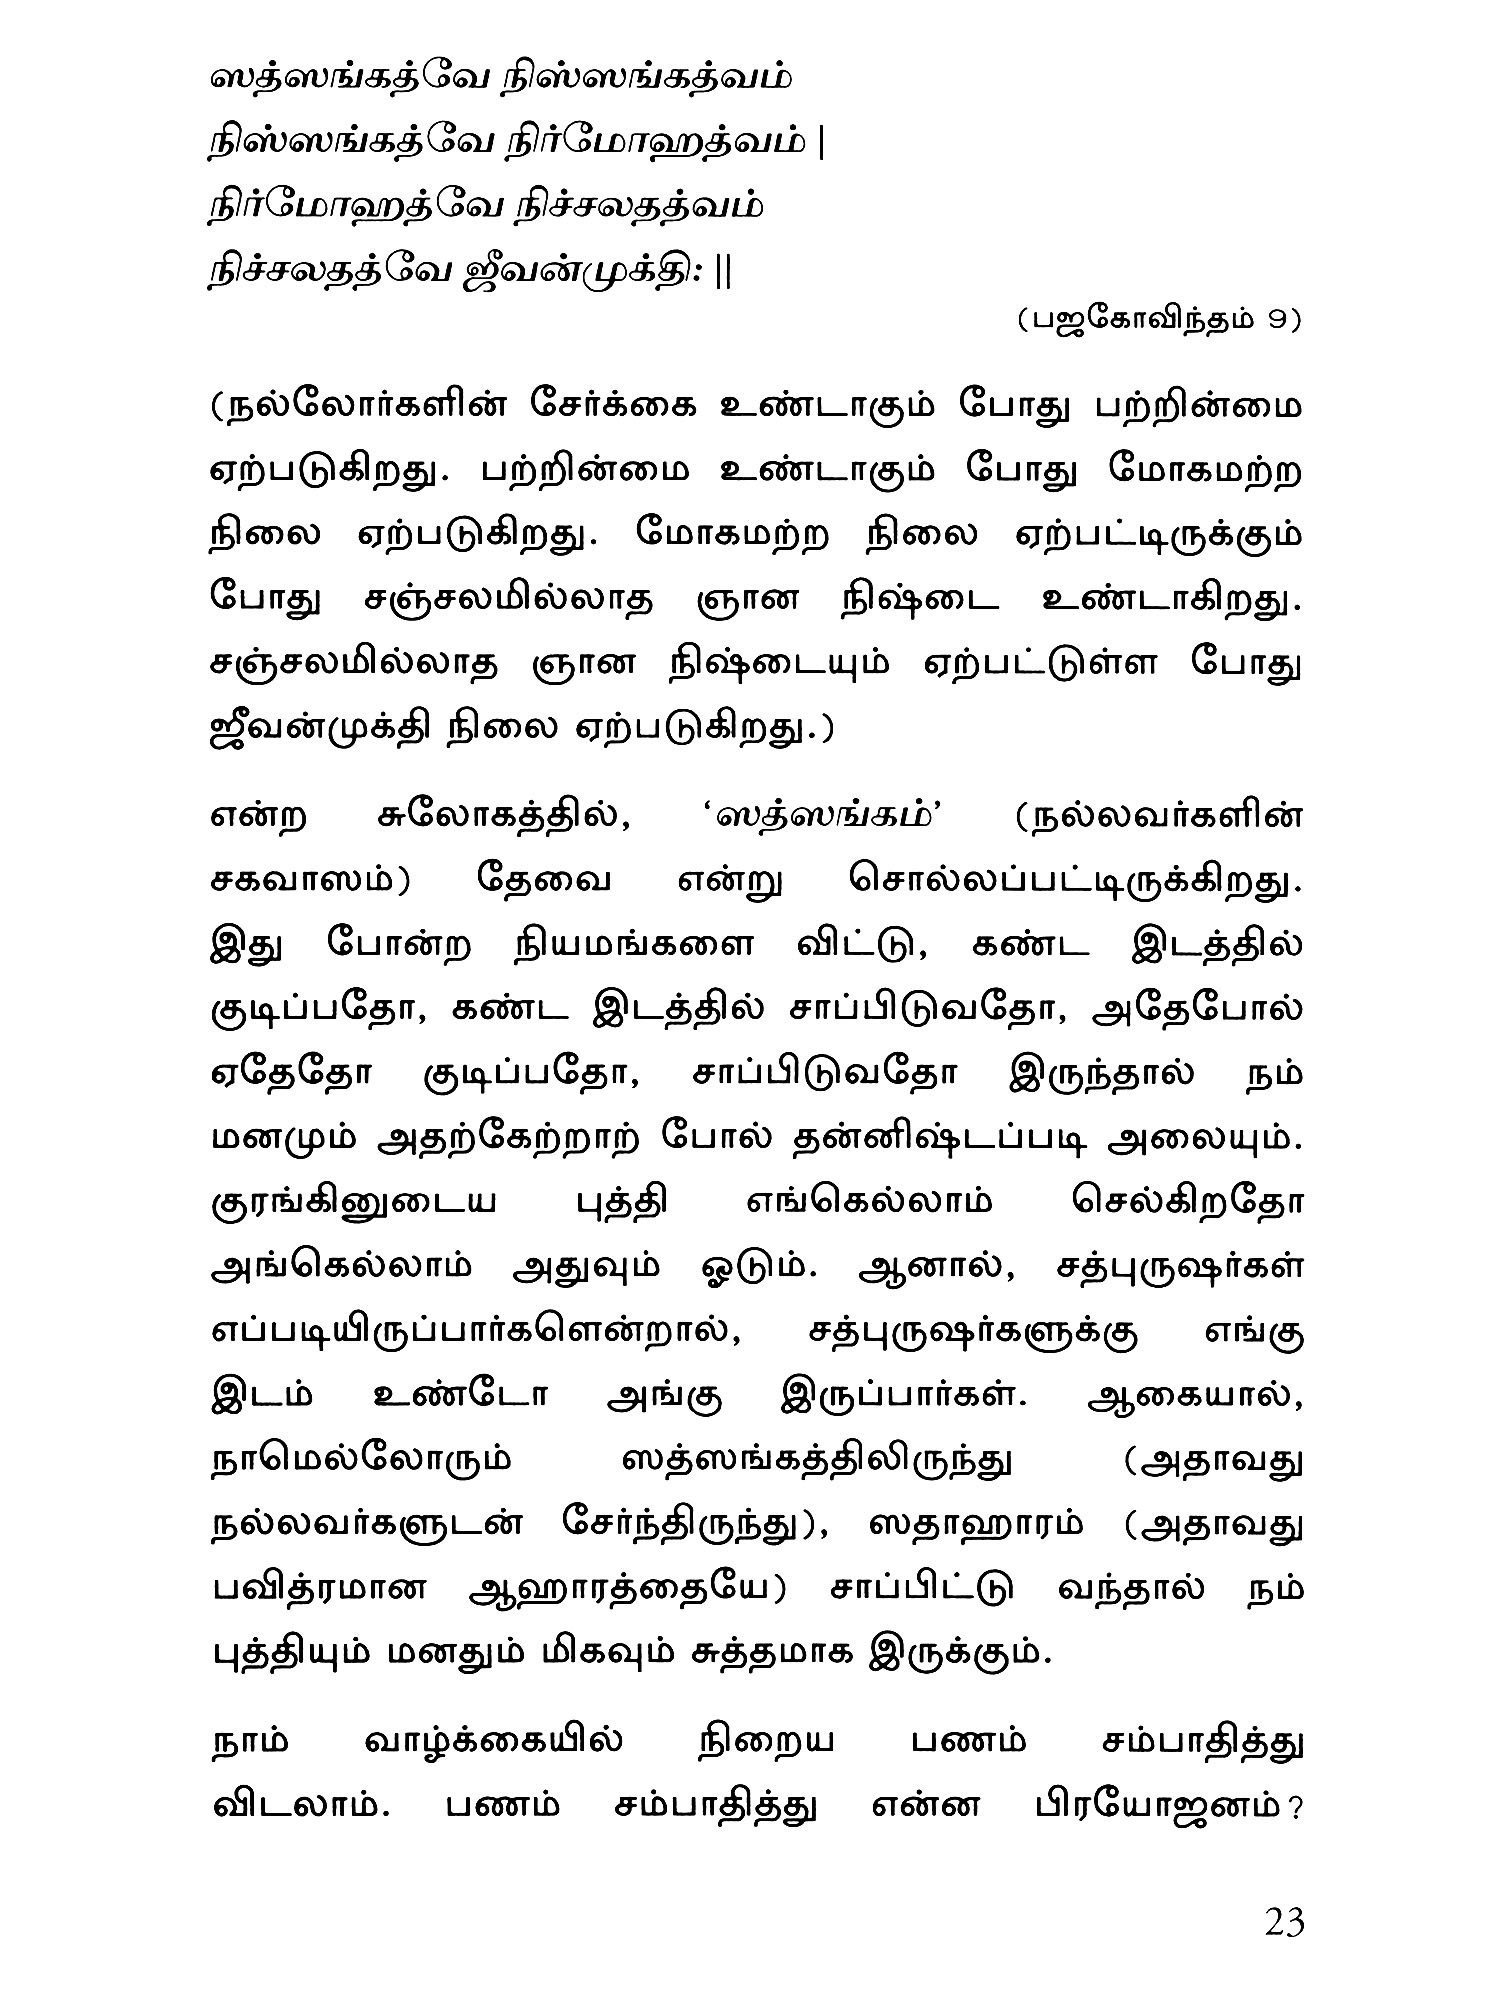 ஸத்ஸங்கத்வே நிஸ்ஸங்கத்வம்
நிஸ்ஸங்கத்வே நிர்மோஹத்வம் |
நிர்மோஹத்வே நிச்சலதத்வம்
நிச்சலதத்வே ஜீவன்முக்தி: ||
(பஜகோவிந்தம் 9)
(நல்லோர்களின் சேர்க்கை உண்டாகும் போது பற்றின்மை
ஏற்படுகிறது. பற்றின்மை உண்டாகும் போது மோகமற்ற
நிலை ஏற்படுகிறது. மோகமற்ற நிலை ஏற்பட்டிருக்கும்
போது சஞ்சலமில்லாத ஞான நிஷ்டை உண்டாகிறது.
சஞ்சலமில்லாத ஞான நிஷ்டையும் ஏற்பட்டுள்ள போது
ஜீவன்முக்தி நிலை ஏற்படுகிறது.)
என்ற சுலோகத்தில், ‘ஸத்ஸங்கம்’ (நல்லவர்களின்
சகவாஸம்) தேவை என்று சொல்லப்பட்டிருக்கிறது.
இது போன்ற நியமங்களை விட்டு, கண்ட இடத்தில்
குடிப்பதோ, கண்ட இடத்தில் சாப்பிடுவதோ, அதேபோல்
ஏதேதோ குடிப்பதோ, சாப்பிடுவதோ இருந்தால் நம்
மனமும் அதற்கேற்றாற் போல் தன்னிஷ்டப்படி அலையும்.
குரங்கினுடைய புத்தி எங்கெல்லாம் செல்கிறதோ
அங்கெல்லாம் அதுவும் ஓடும். ஆனால், சத்புருஷர்கள்
எப்படியிருப்பார்களென்றால், சத்புருஷர்களுக்கு எங்கு
இடம் உண்டோ அங்கு இருப்பார்கள். ஆகையால்,
நாமெல்லோரும் ஸத்ஸங்கத்திலிருந்து (அதாவது
நல்லவர்களுடன் சேர்ந்திருந்து), ஸதாஹாரம் (அதாவது
பவித்ரமான ஆஹாரத்தையே) சாப்பிட்டு வந்தால் நம்
புத்தியும் மனதும் மிகவும் சுத்தமாக இருக்கும்.
நாம் வாழ்க்கையில் நிறைய பணம் சம்பாதித்து
விடலாம். பணம் சம்பாதித்து என்ன பிரயோஜனம்?
23